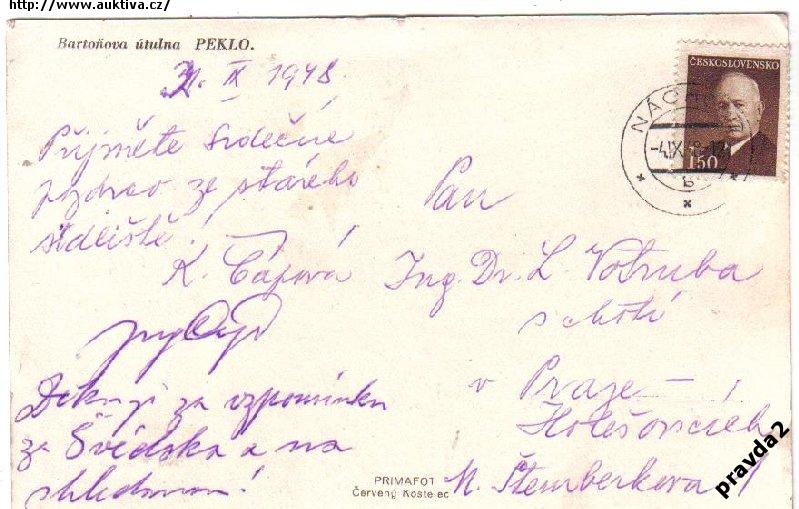 http://www.auktiva.cz/
Bartoňova útulna PEKLO.
IX 1948.
Přijměte srdečné
pozdrav ze starého
sídliště!
K. Čápová
Děkuji za vzpomínku
ze Švédska a na
shledanou!
ČESKOSLOVENSKO
150
NÁCHOD
-4.IX.
Pan
Ing. Dr. L. Votruba
s chotí
v Praze -
Holešovicích
N. Štemberkova
PRIMAFOT
Červený Kostelec
pravda2